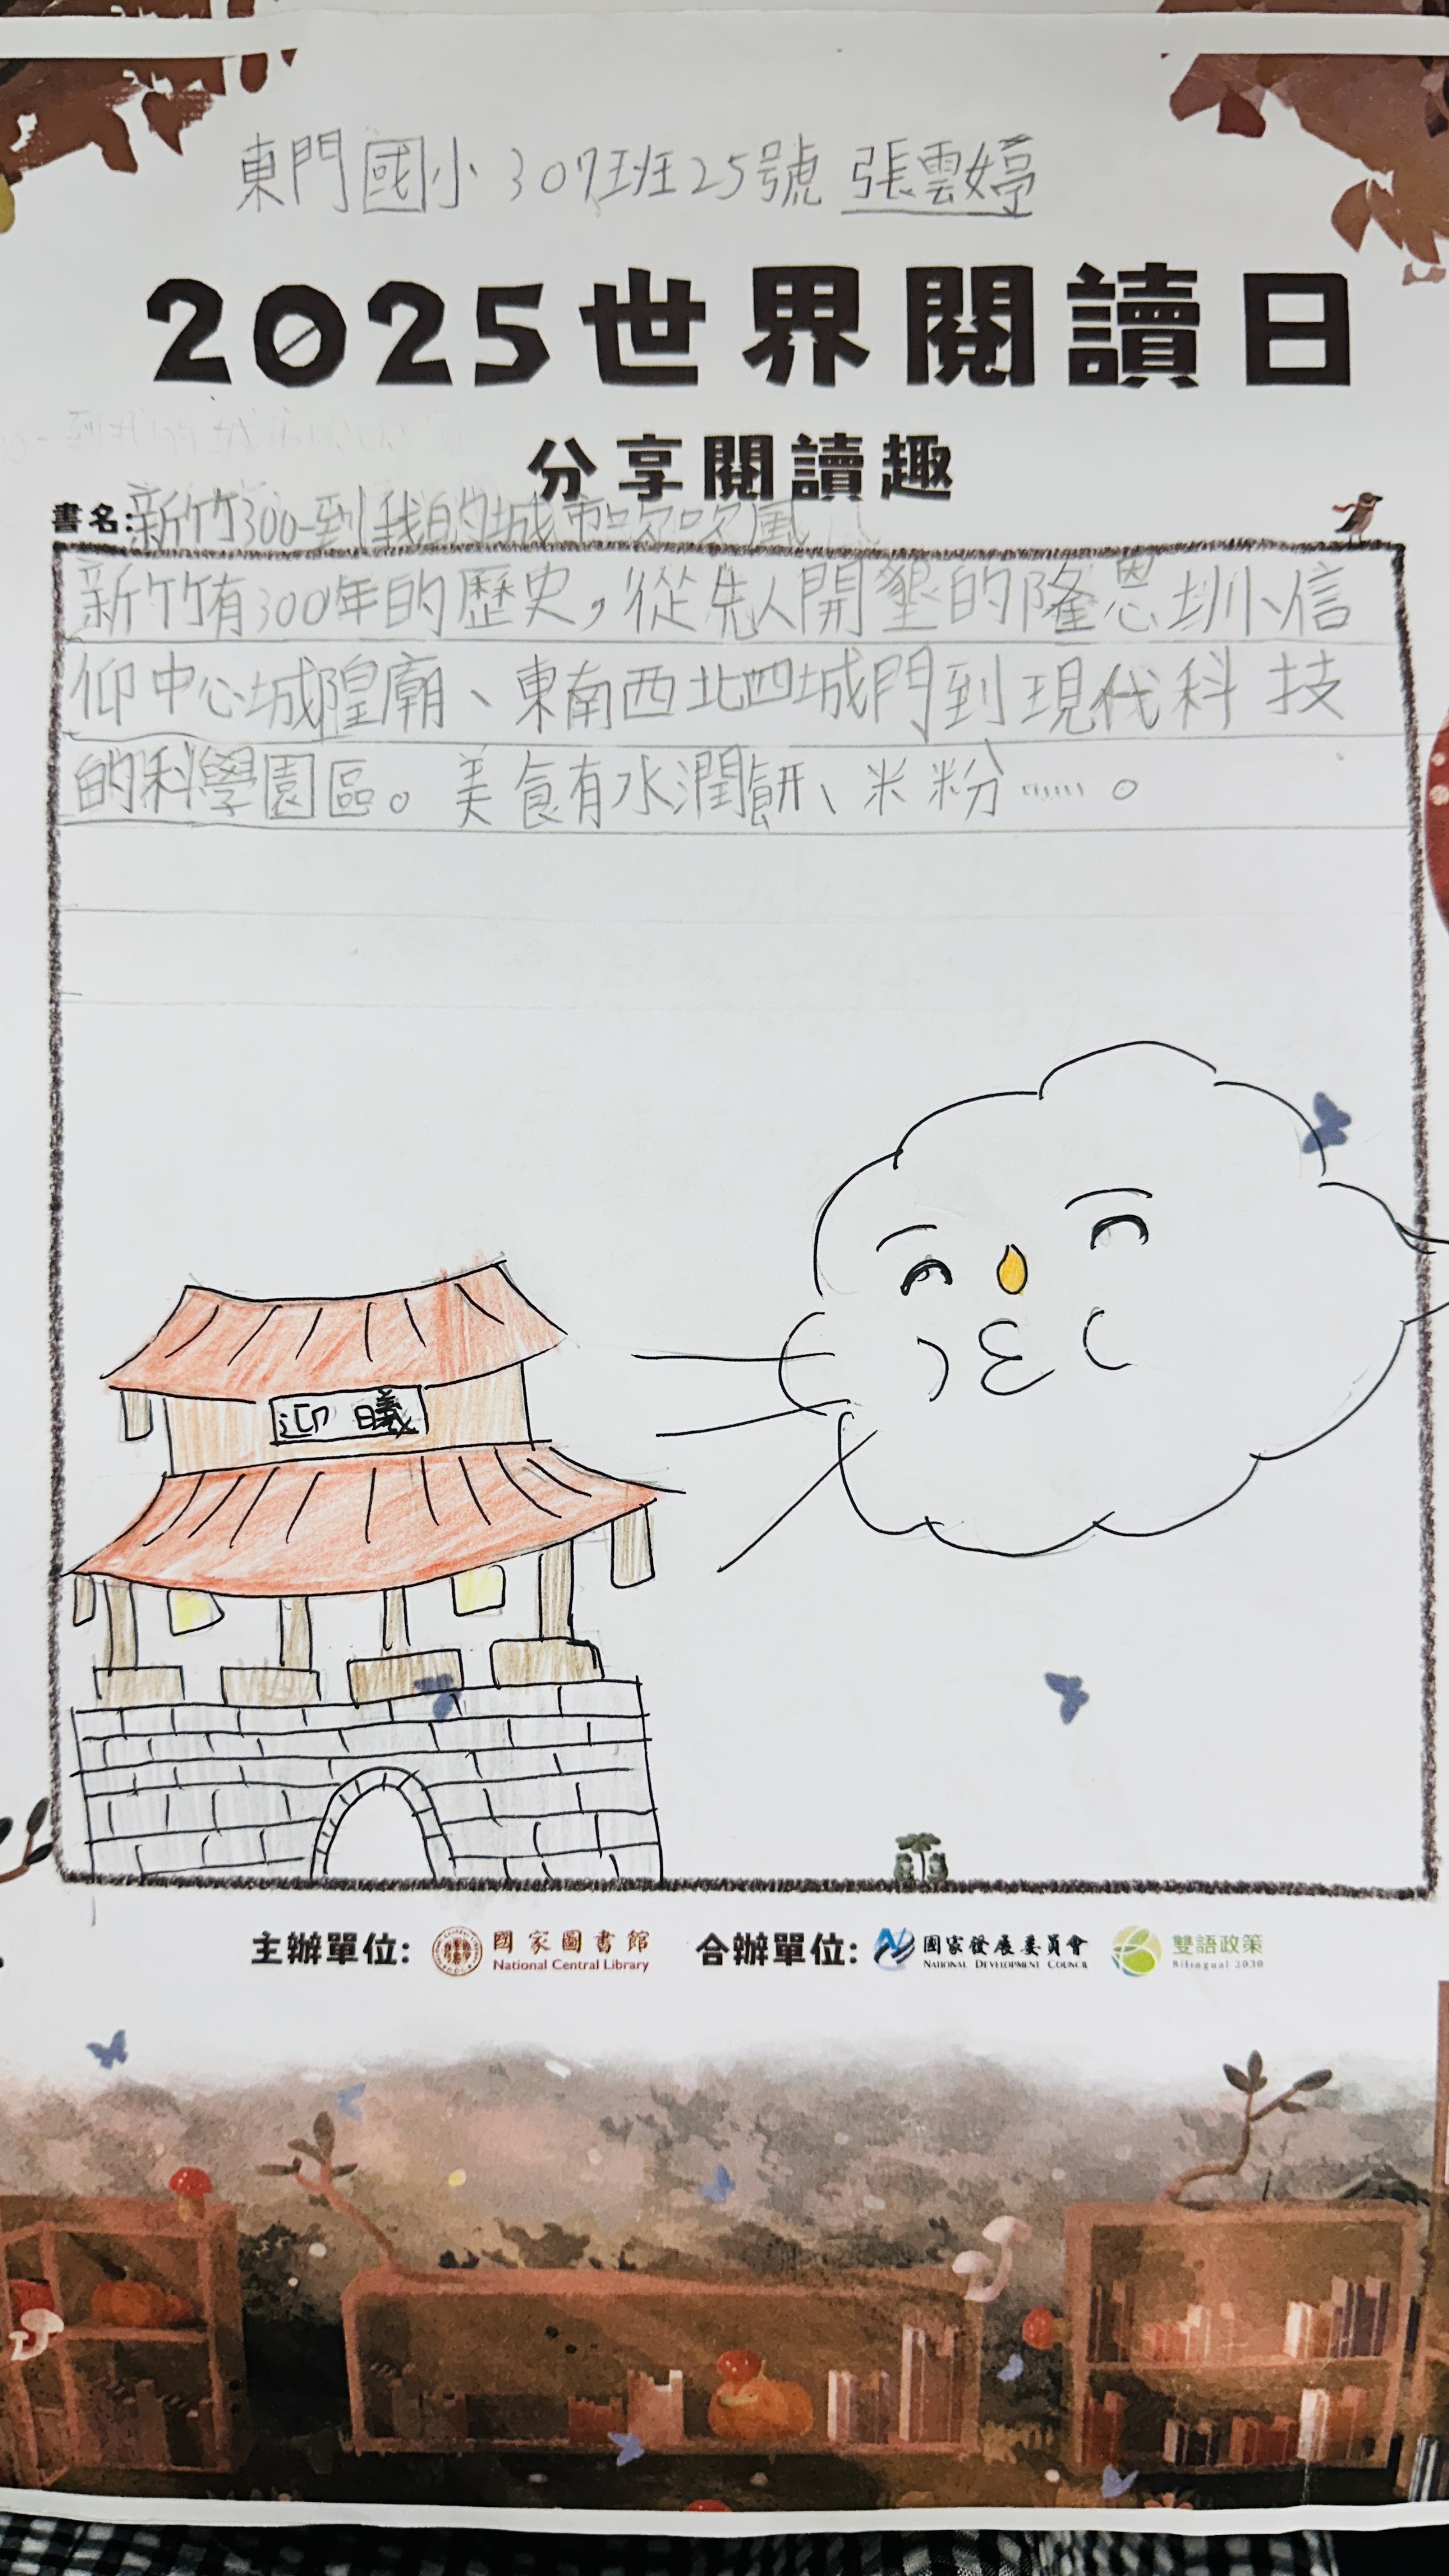 東門國小307班25號 張雲婷
2025世界閱讀日
分享閱讀趣
書名:新竹300-到我的城市吹吹風
新竹有300年的歷史,從先人開墾的隆恩圳、信
仰中心城隍廟、東南西北四城門到現代科技
的科學園區。美食有水潤餅、米粉……。
迎曦
主辦單位: 國家圖書館 合辦單位: 國家發展委員會 雙語政策
National Central Library NATIONAL DEVELOPMENT COUNCIL Bilingual 2030